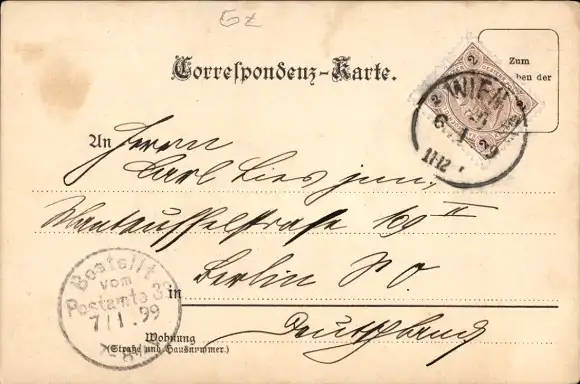 Correspondenz-Karte.
Zum
ben der
2 2
WIEN
6. 1. 99
11-12
An Herrn
Carl Lies jun.
Manteuffelstrasse 109 II
Bestellt
vom
Postamte 33
7/1. 99
in Berlin S O.
Deutschland
Wohnung
(Straße und Hausnummer.)